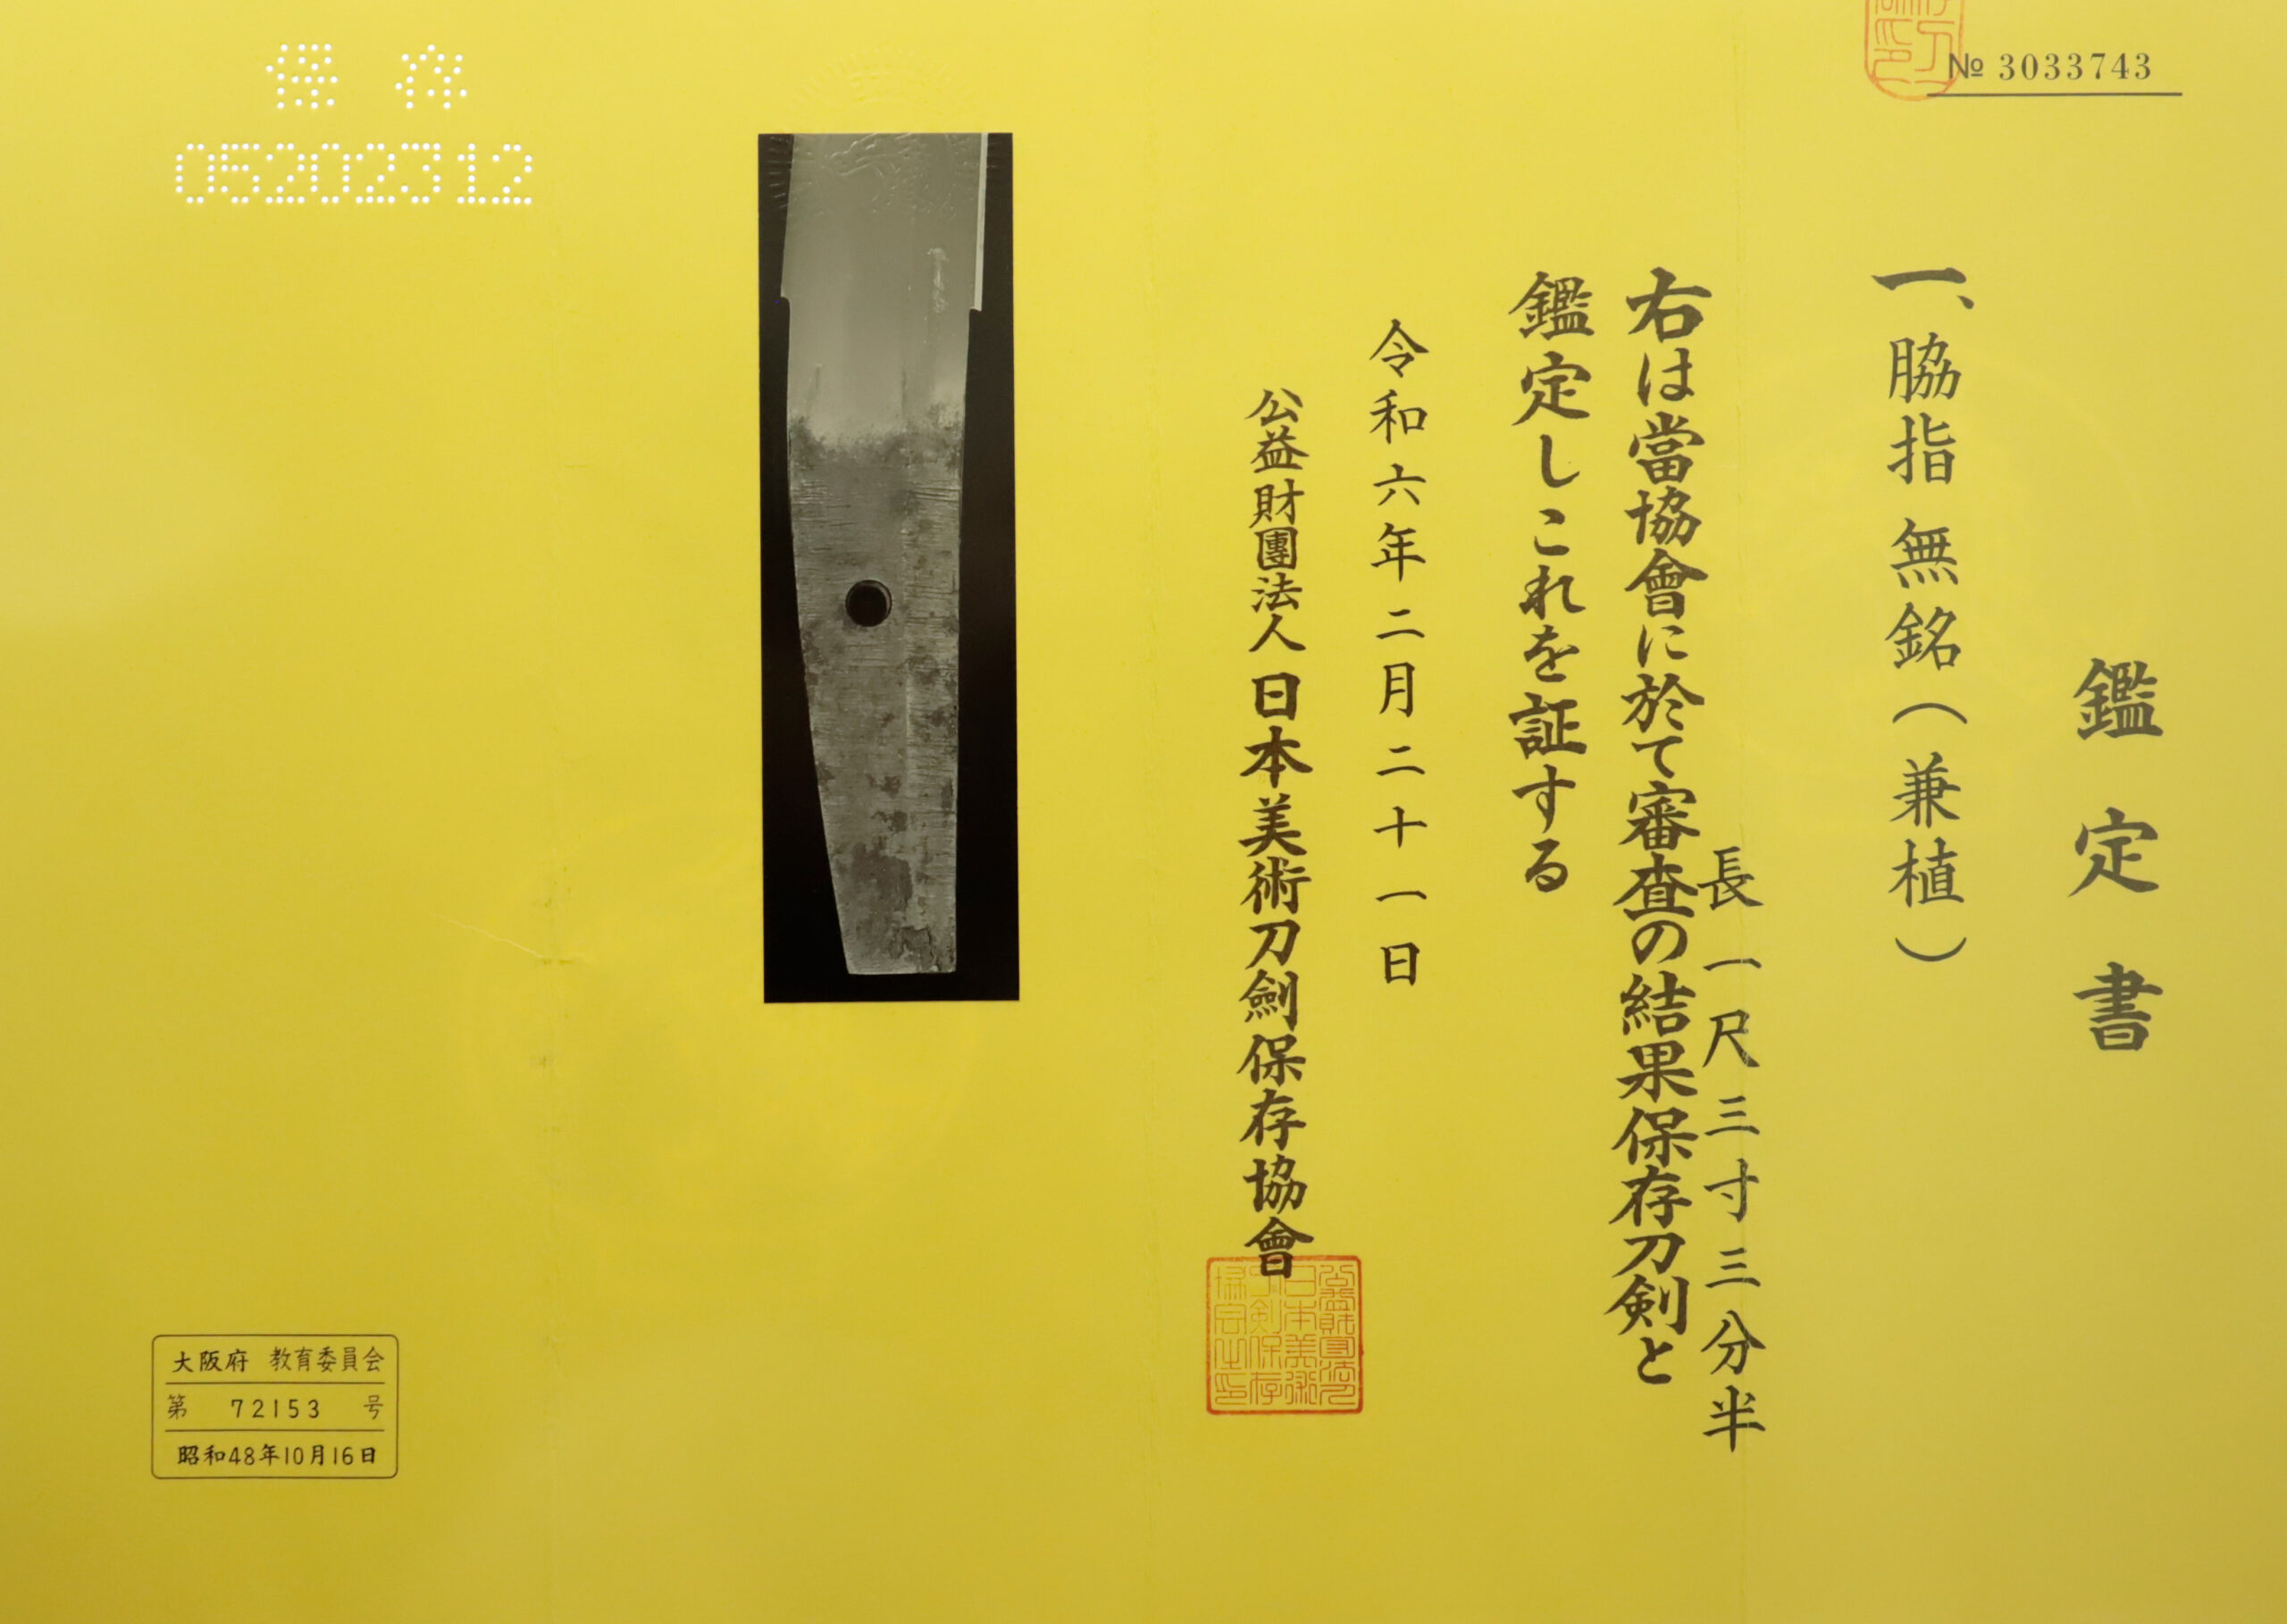 № 3033743
鑑定書
一、脇指 無銘（兼植）
長 一尺三寸三分半
右は當協會に於て審査の結果保存刀剣と
鑑定しこれを証する
令和六年二月二十一日
公益財團法人 日本美術刀劍保存協會
保存
05202312
大阪府 教育委員会
第 72153 号
昭和48年10月16日